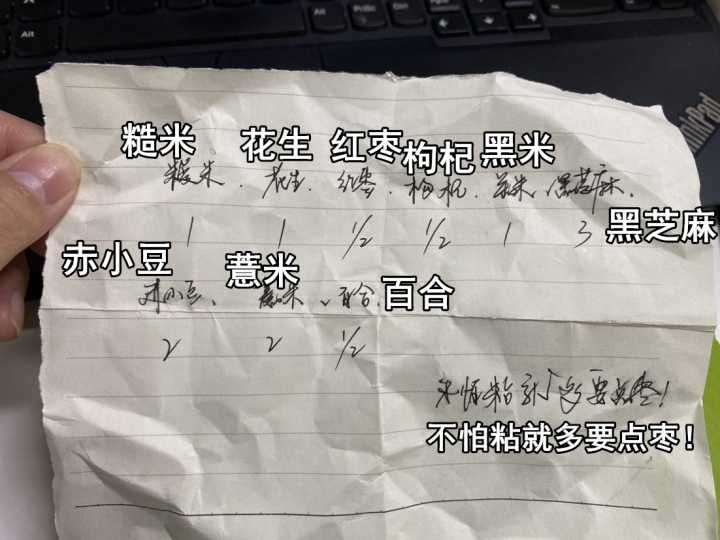 糙米 花生 红枣 枸杞 黑米
糙米、花生、红枣、枸杞、黑米、黑芝麻、
1 1 1/2 1/2 1 3 黑芝麻
赤小豆 薏米 百合
赤小豆、薏米、百合
2 2 1/2
不怕粘就多要点枣!
不怕粘就多要点枣!
ThinkPad
Alt
PrtSc
Ctrl
PgUp
PgDn